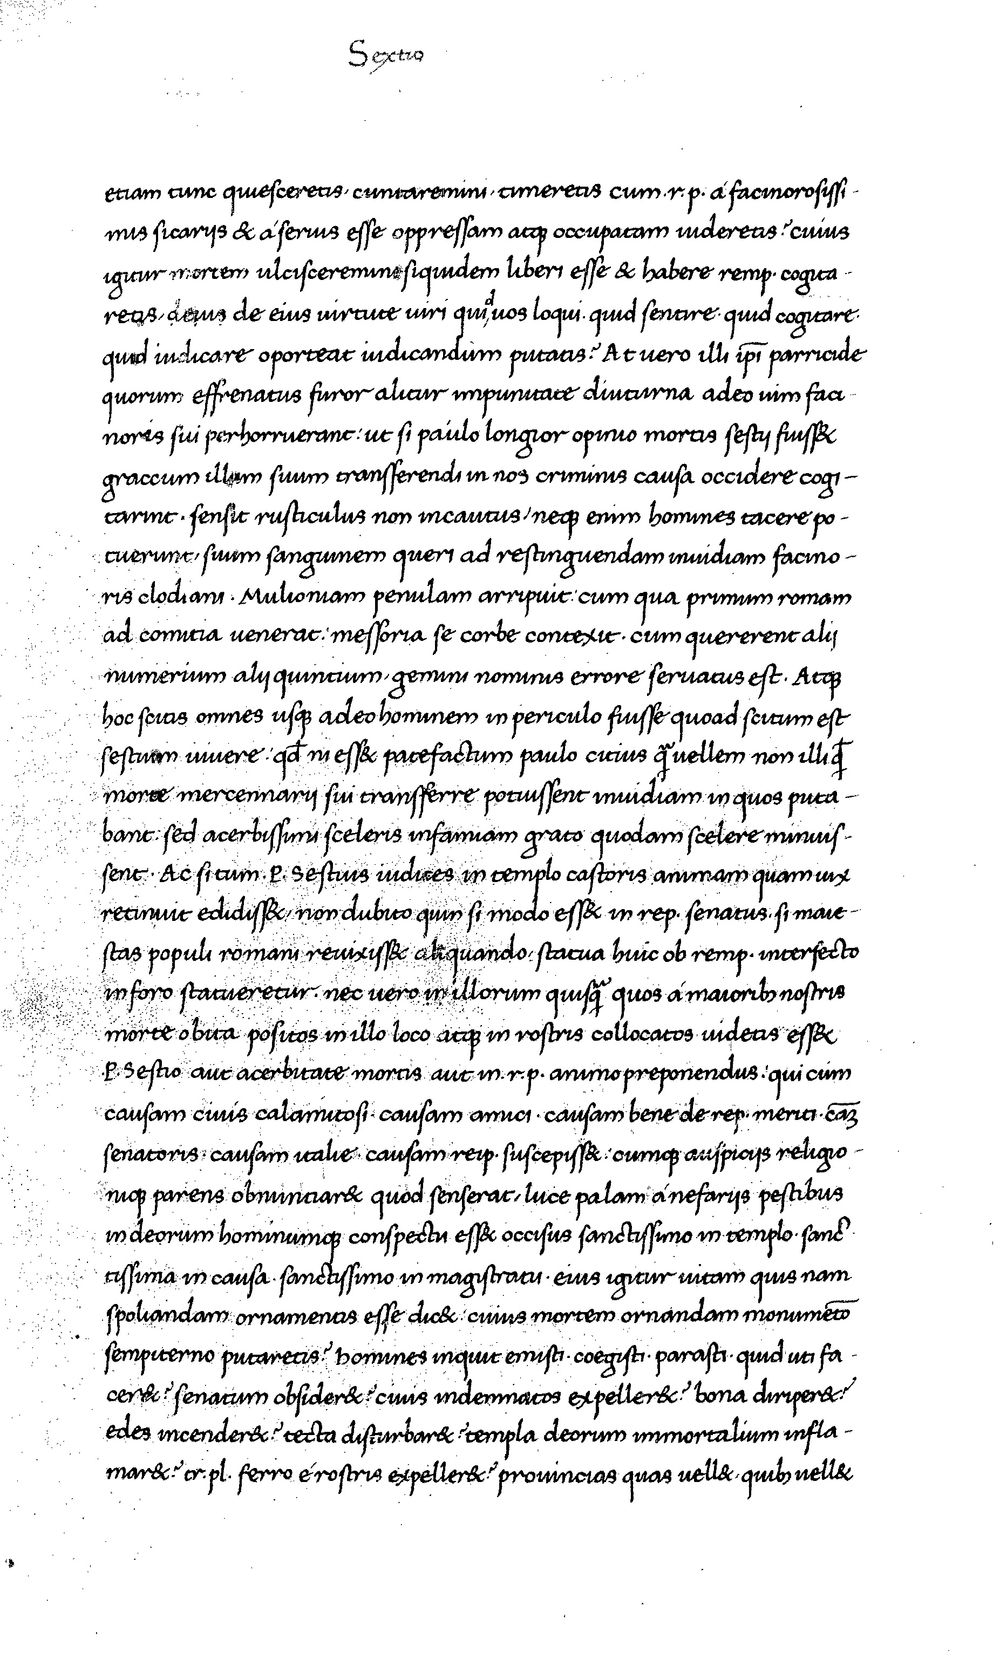 Sextio
etiam tunc quiesceretis· cunctaremini· timeretis cum·r·p· á facinorosissi-
mis sicarijs & á seruis esse oppressam atqꝫ occupatam uideretis? cuius
igitur mortem ulcisceremini siquidem liberi esse & habere remp· cogita-
retis, de eius uirtute uiri quid uos loqui· quid sentire· quid cogitare·
quid iudicare oporteat iudicandum putatis? At uero illi ip̄i parricide
quorum effrenatus furor alitur impunitate diuturna adeo uim faci-
noris sui perhorruerant: ut si paulo longior opinio mortis sestij fuiss&
graccum illum suum transferendi in nos criminis causa occidere cogi-
tarint· sensit rusticulus non incautus, neqꝫ enim homines tacere po-
tuerunt, suum sanguinem queri ad restinguendam inuidiam facino-
ris clodiani· Mulioniam penulam arripuit: cum qua primum romam
ad comitia uenerat: messoria se corbe contexit· cum quererent alij
numerium alij quintium, gemini nominis errore seruatus est· Atqꝫ
hoc scitis omnes usqꝫ adeo hominem in periculo fuisse quoad scitum est
sestium uiuere: qd̄ ni ess& patefactum paulo citius q̄ uellem non illi q̄
morte mercennarij sui transferre potuissent inuidiam in quos puta-
bant: sed acerbissimi sceleris infamiam grato quodam scelere minuis-
sent· Ac si tum·P·Sestius iudices in templo castoris animam quam uix
retinuit edidiss&, non dubito quin si modo ess& in rep· senatus· si maie-
stas populi romani reuixiss& aliquando: statua huic ob remp· interfecto
in foro statueretur· nec uero illorum quisq̄ quos á maioribꝫ nostris
morte obita positos in illo loco atqꝫ in rostris collocatos uidetis ess&
P·Sestio aut acerbitate mortis aut in·r·p· animo preponendus: qui cum
causam ciuis calamitosi· causam amici· causam bene de rep· meriti· cāꝫ
senatoris: causam italie· causam reip· suscepiss&: cumqꝫ auspicijs religio-
niqꝫ parens obnuntiar& quod senserat, luce palam á nefarijs pestibus
in deorum hominumqꝫ conspectu ess& occisus sanctissimo in templo· sanc-
tissima in causa· sanctissimo in magistratu· eius igitur uitam quis nam
spoliandam ornamentis esse dic&: cuius mortem ornandam monumēto
sempiterno putaretis? homines inquit emisti· coegisti· parasti· quid uti fa-
cer&? senatum obsider&? ciuis indemnatos expeller&? bona diriper&?
edes incender&? tecta disturbar&? templa deorum immortalium infla-
mar&? tr·pl· ferro é rostris expeller&? prouincias quas uell&· quibꝫ uell&